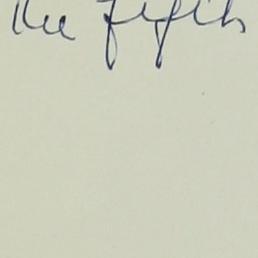 the fifth